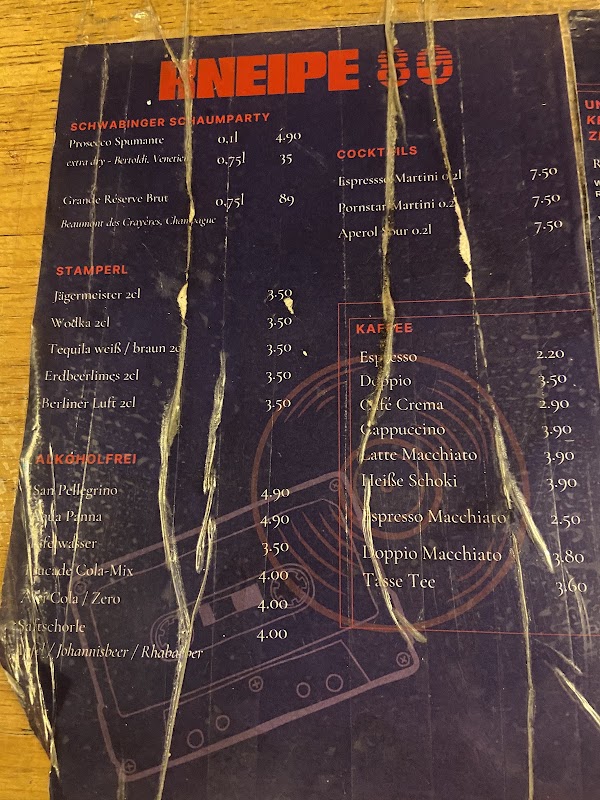 KNEIPE 80
SCHWABINGER SCHAUMPARTY
Prosecco Spumante 0,1l 4.90
extra dry - Bertoldi, Venetien 0,75l 35
Grande Réserve Brut 0,75l 89
Beaumont des Crayères, Champagne
STAMPERL
Jägermeister 2cl 3.50
Wodka 2cl 3.50
Tequila weiß / braun 2cl 3.50
Erdbeerlimes 2cl 3.50
Berliner Luft 2cl 3.50
ALKOHOLFREI
San Pellegrino 4.90
Aqua Panna 4.90
Tafelwasser 3.50
Cola-Mix 4.00
Afri Cola / Zero 4.00
Saftschorle 4.00
Apfel / Johannisbeer / Rhabarber
COCKTAILS
Espressso Martini 0.2l 7.50
Pornstar Martini 0.2l 7.50
Aperol Sour 0.2l 7.50
KAFFEE
Espresso 2.20
Doppio 3.50
Café Crema 2.90
Cappuccino 3.90
Latte Macchiato 3.90
Heiße Schoki 3.90
Espresso Macchiato 2.50
Doppio Macchiato 3.80
Tasse Tee 3.60
UN